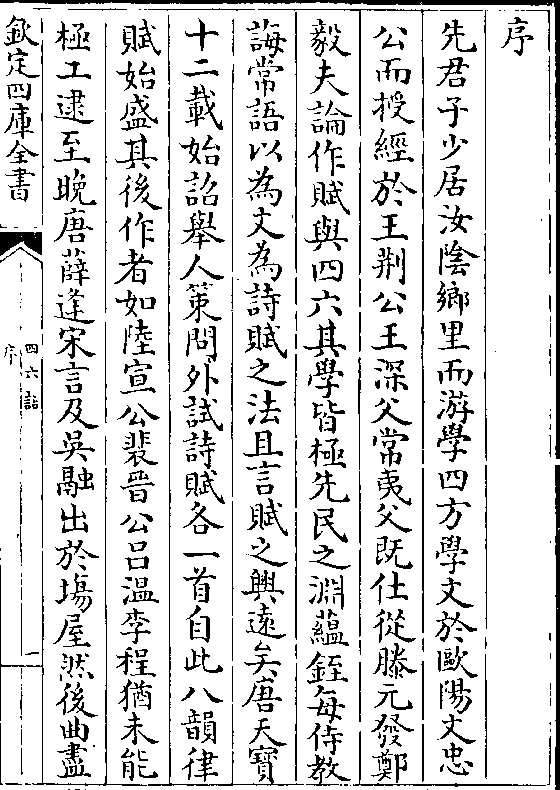 序
先君子少居汝陰鄉里而游學四方學文於歐陽文忠
公而授經於王荆公王深父常夷父既仕從滕元發鄭
毅夫論作賦與四六其學皆極先民之淵藴銍每侍教
誨常語以為文為詩賦之法且言賦之興逺矣唐天寶
十二載始詔舉人策問外試詩賦各一首自此八韻律
賦始盛其後作者如陸宣公裴晉公吕温李程猶未能
極工逮至晚唐薛逢宋言及吳融出於塲屋然後曲盡
欽定四庫全書
四六話
序
一